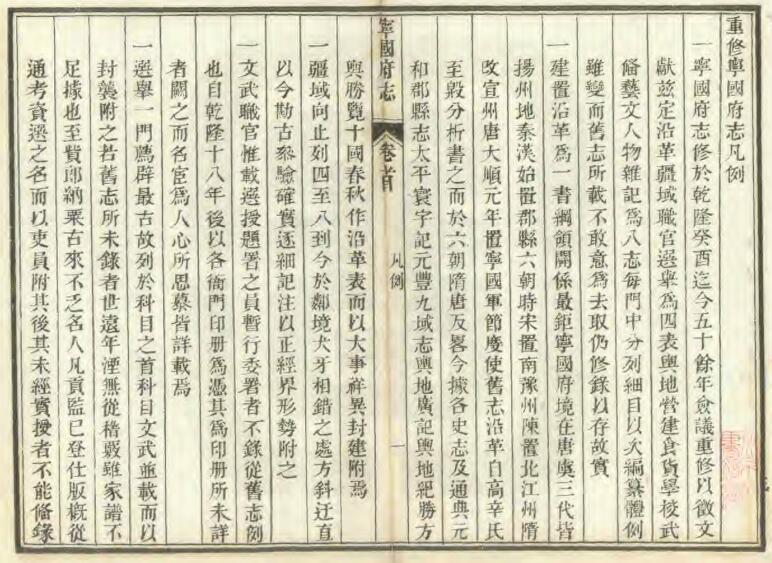 重修寧國府志凡例
一寧國府志修於乾隆癸酉迄今五十餘年僉議重修以徵文
獻茲定沿革疆域職官選舉爲四表輿地營建食貨學校武
備藝文人物雜記爲八志每門中分列細目以次編纂體例
雖變而舊志所載不敢意爲去取仍修錄以存故實
一建置沿革爲一書綱領關係最鉅寧國府境在唐虞三代皆
揚州地秦漢始置郡縣六朝時宋置南豫州陳置北江州隋
改宣州唐大順元年置寧國軍節度使舊志沿革自高辛氏
至殺分析書之而於六朝隋唐反畧今據各史志及通典元
和郡縣志太平寰宇記元豐九域志輿地廣記輿地紀勝方
寧國府志
卷首
凡例
一
輿勝覽十國春秋作沿革表而以大事祥異封建附焉
一疆域向止列四至八到今於鄰境犬牙相錯之處方斜迂直
以今勘古參驗確實逐細記注以正經界形勢附之
一文武職官惟載選授題署之員暫行委署者不錄從舊志例
也自乾隆十八年後以各衙門印册爲憑其爲印册所未詳
者闕之而名宦爲人心所思慕皆詳載焉
一選舉一門薦辟最古故列於科目之首科目文武並載而以
封襲附之若舊志所未錄者世遠年湮無從稽覈雖家譜不
足據也至貲郎納粟古來不乏名人凡貢監已登仕版槪從
通考資選之名而以吏員附其後其未經實授者不能備錄